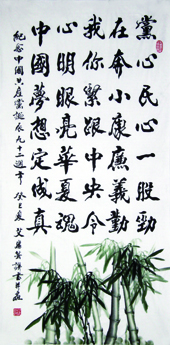 黨心民心一股勁
在奔小康廉義勤
我你緊跟中央令
心明眼亮華夏魂
中國夢想定成真
紀念中國共産黨誕辰九十二週年 癸巳夏